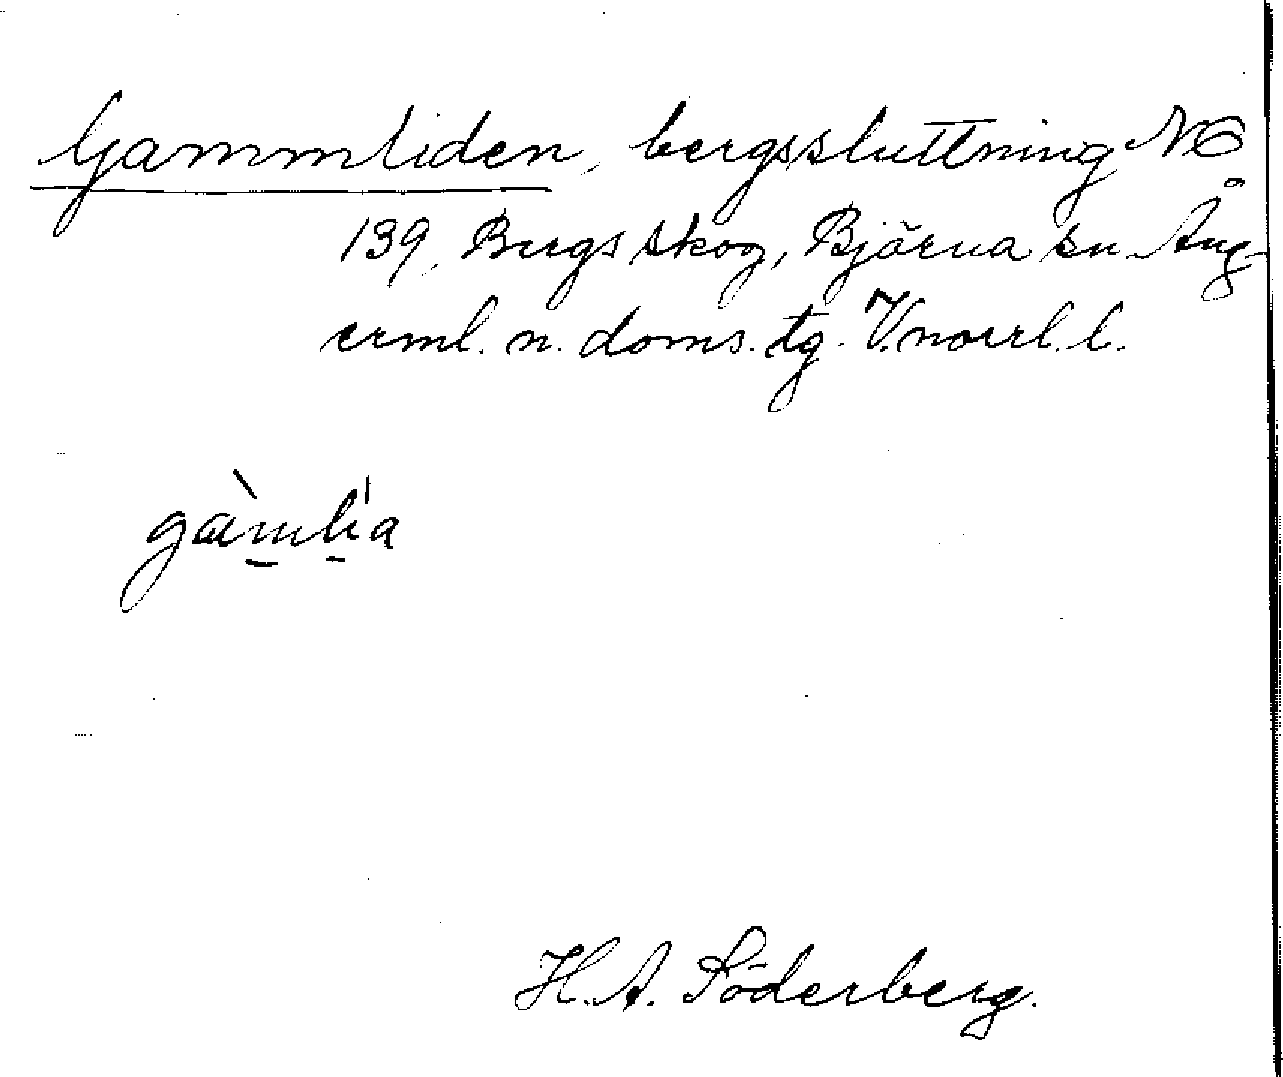 Gammliden, bergssluttning NO
139, Bergs skog, Björna sn Ång-
erml. n. doms. tg. V.norrl. l.
gàmlía
H. A. Söderberg.